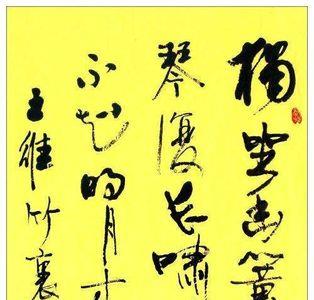 獨坐幽篁
琴復长嘯
不知明月
王維竹裏